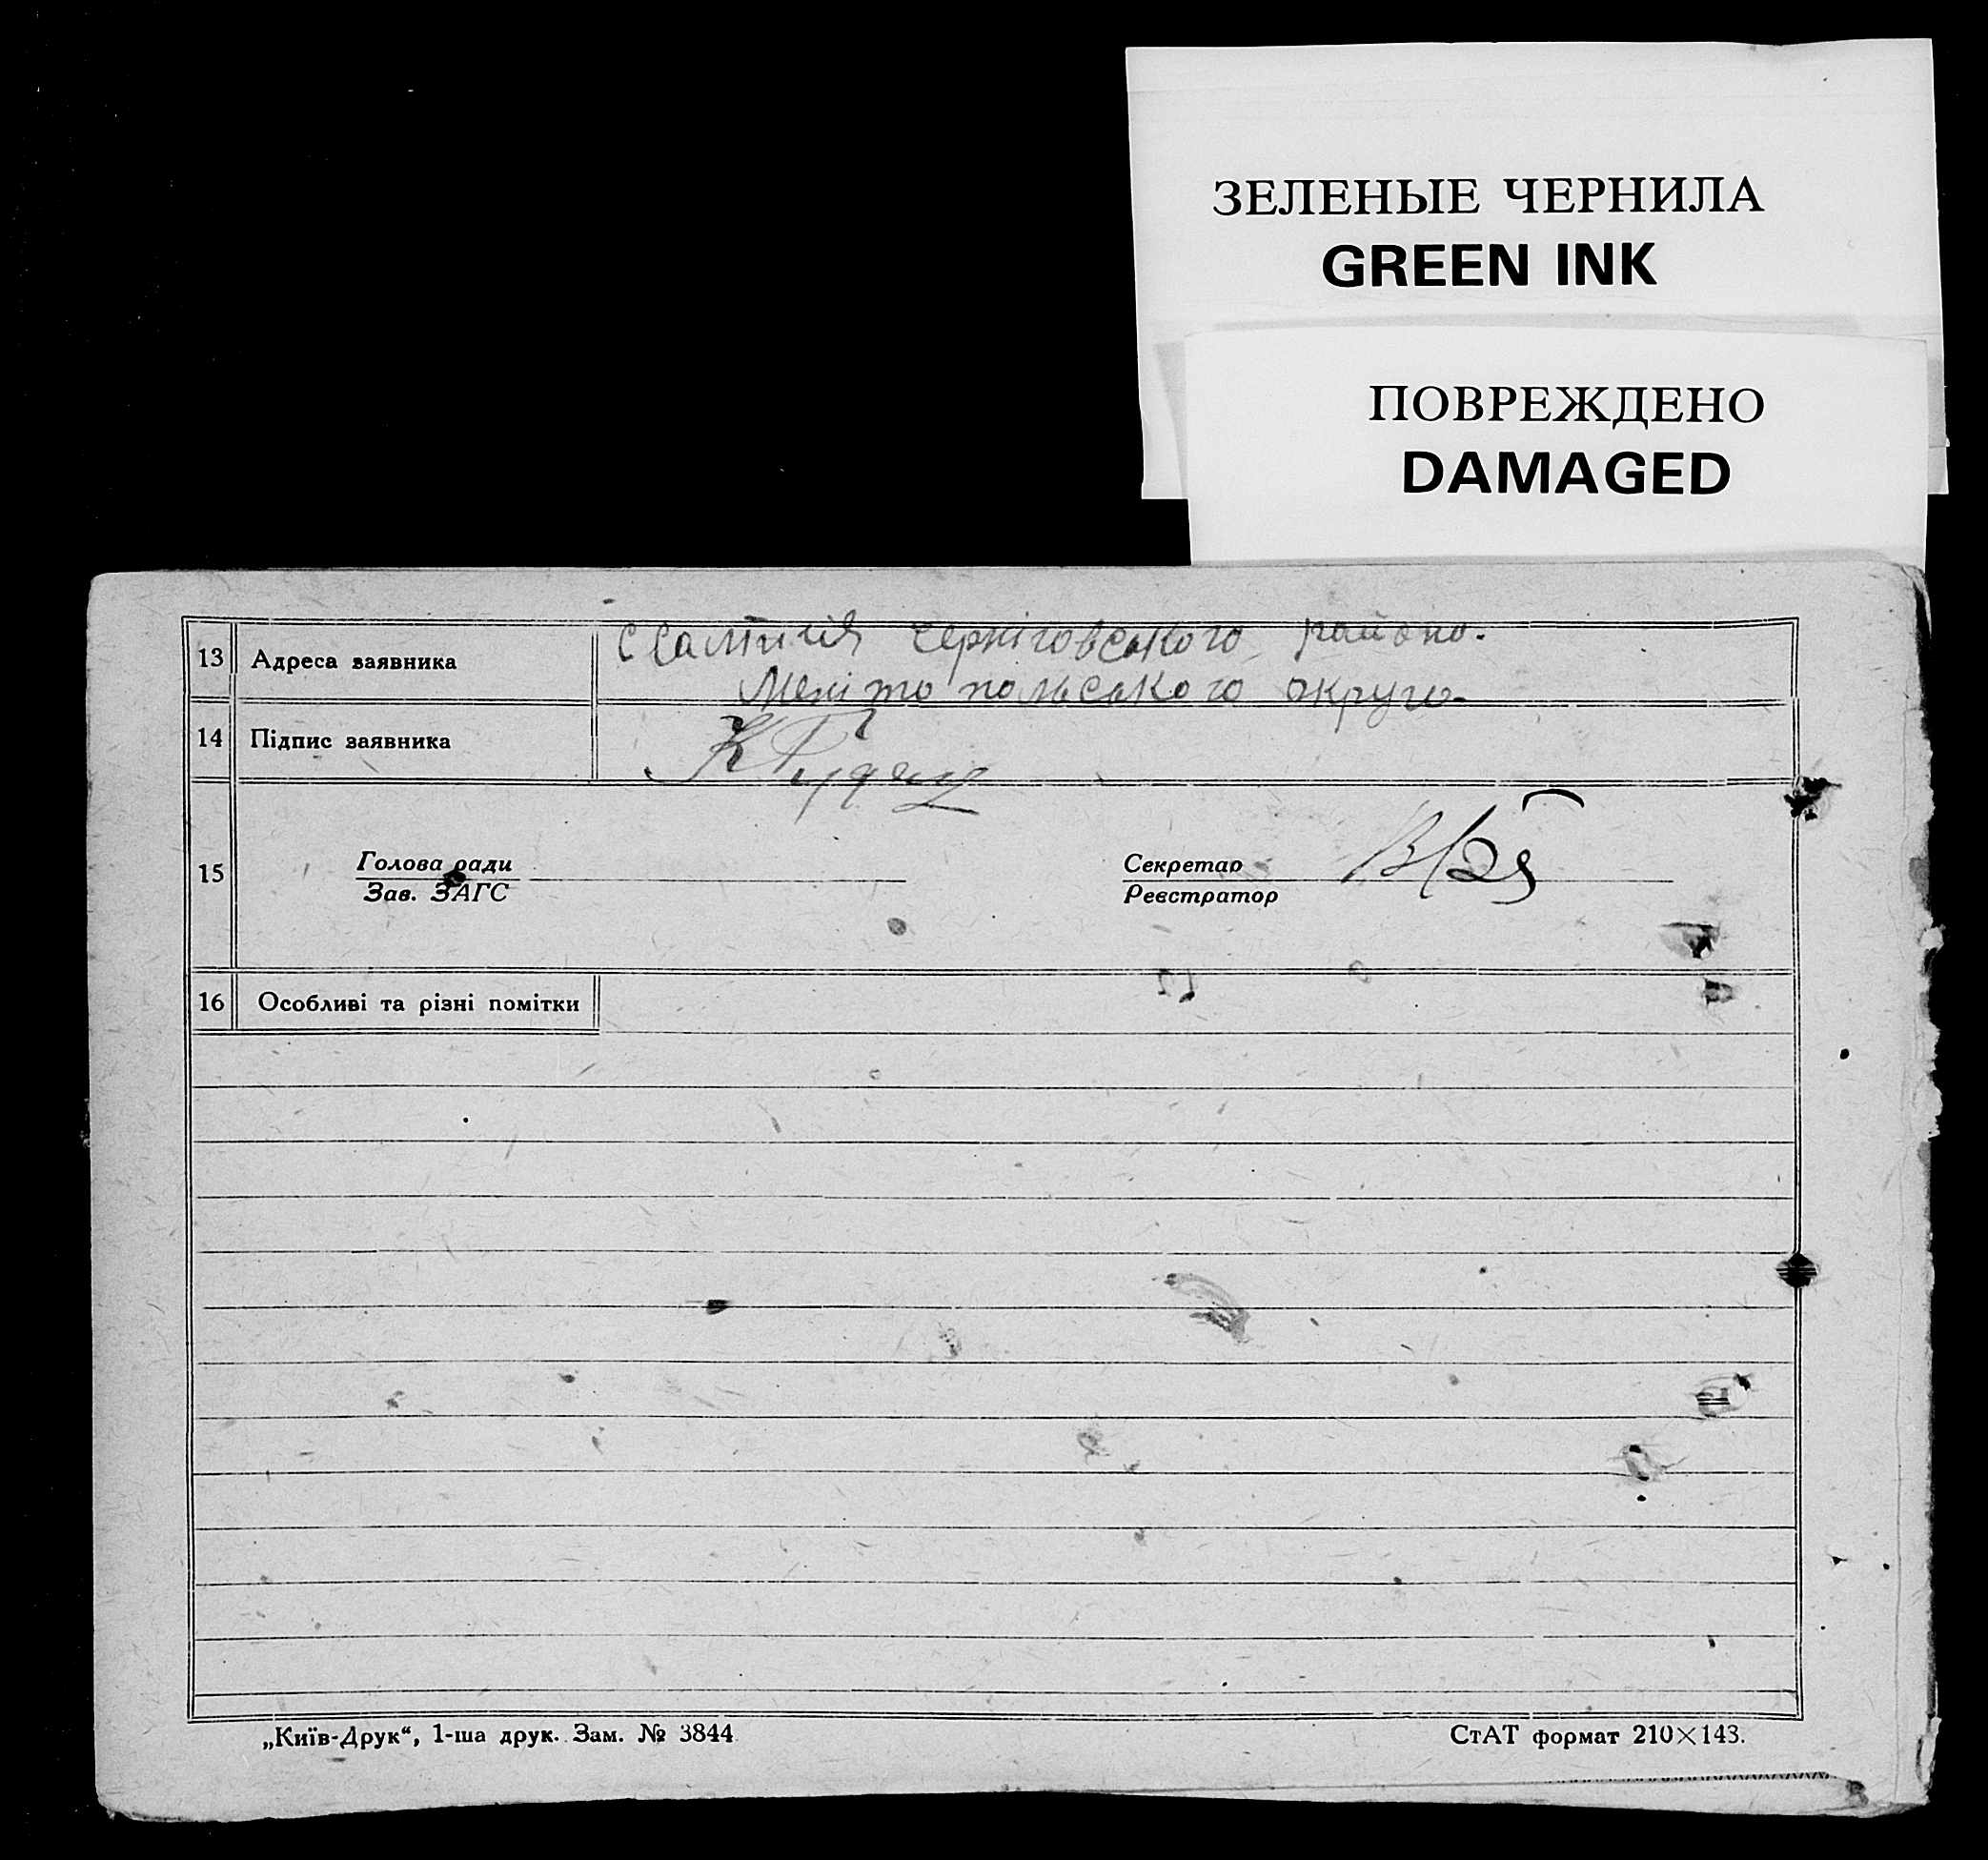 ЗЕЛЕНЫЕ ЧЕРНИЛА
GREEN INK
ПОВРЕЖДЕНО
DAMAGED
13 Адреса заявника
Черніговського району.
Мелітопольського округа.
14 Підпис заявника
15
Голова ради
Зав. ЗАГС
Секретар
Реєстратор
16 Особливі та різні помітки
„Київ-Друк“, 1-ша друк. Зам. № 3844
СтАТ формат 210×143.